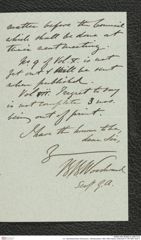 matter before the Council
which shall be done at
their next meeting.
No 9 of Vol X. is not
yet out & will be sent
when published.
Vol III. I regret to say
is not complete 3 nos.
being out of print.
I have the honour to be,
dear Sir,